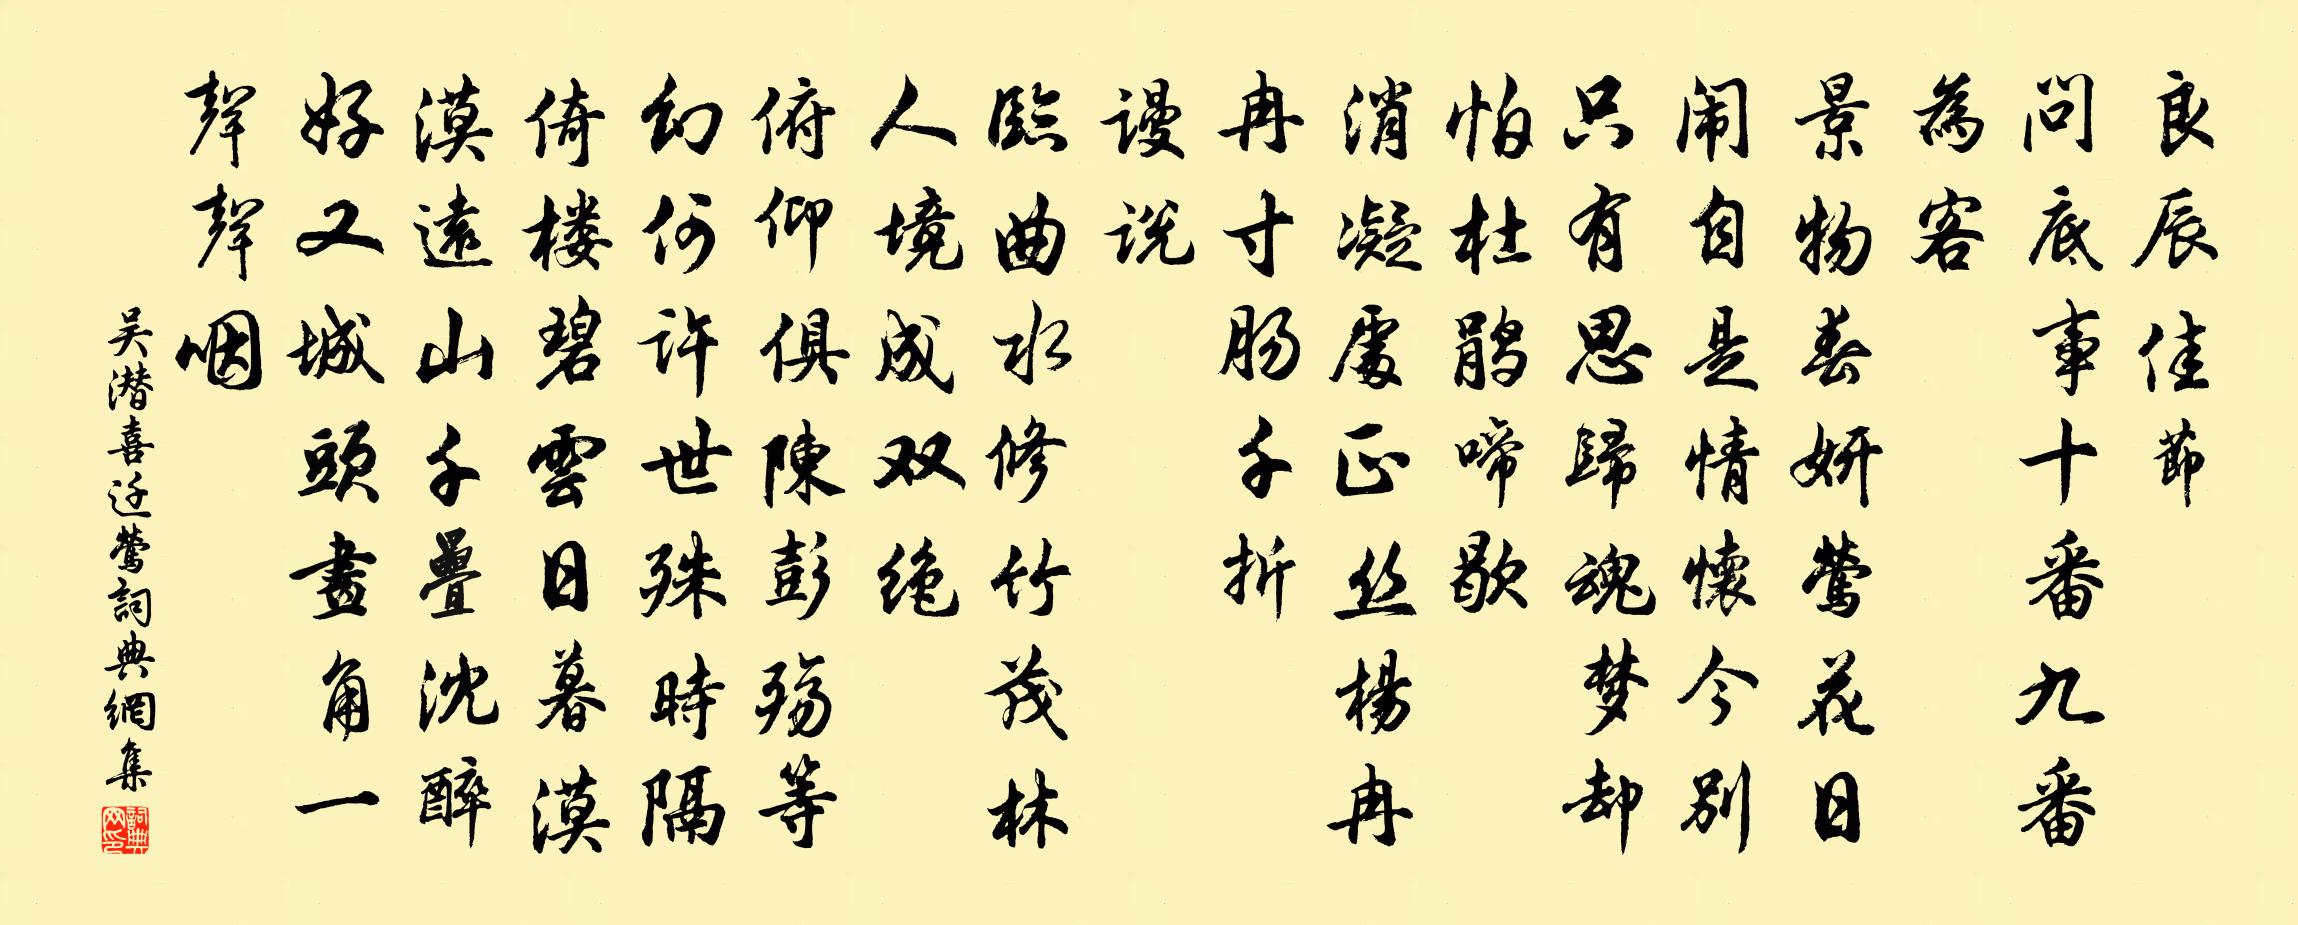 良辰佳節
問底事十番九番
為客
景物春妍鶯花日
闹自是情懷今别
只有思歸魂梦却
怕杜鹃啼歇
消凝處正丝楊冉
冉寸肠千折
謾说
臨曲水修竹茂林
人境成双绝
俯仰俱陳彭殤等
幻何许世殊時隔
倚楼碧雲日暮漠
漠遠山千疊沈醉
好又城頭畫角一
聲聲咽
吴潜喜迁鶯詞典網集
詞典網印